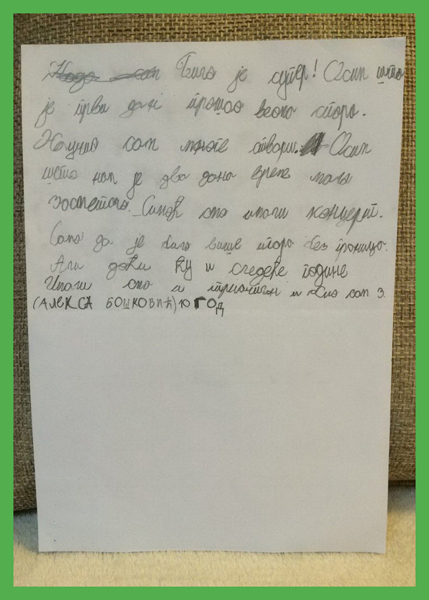 Било је супер! Осим што
је први дан прошао веома споро.
Научио сам многе ствари. Осим
што нам је два дана време мало
Синоћ смо имали концерт.
Само да је било више без
Али доћи ћу и следеће године
Имали смо и и био сам 3.
(АЛЕКСА БОШКОВИЋ) 10 ГОД